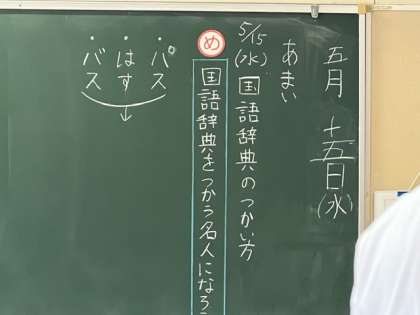 五月十五日(水)
あまい
5/15(水)国語辞典のつかい方
め
国語辞典をつかう名人になろう
パス
はす
バス